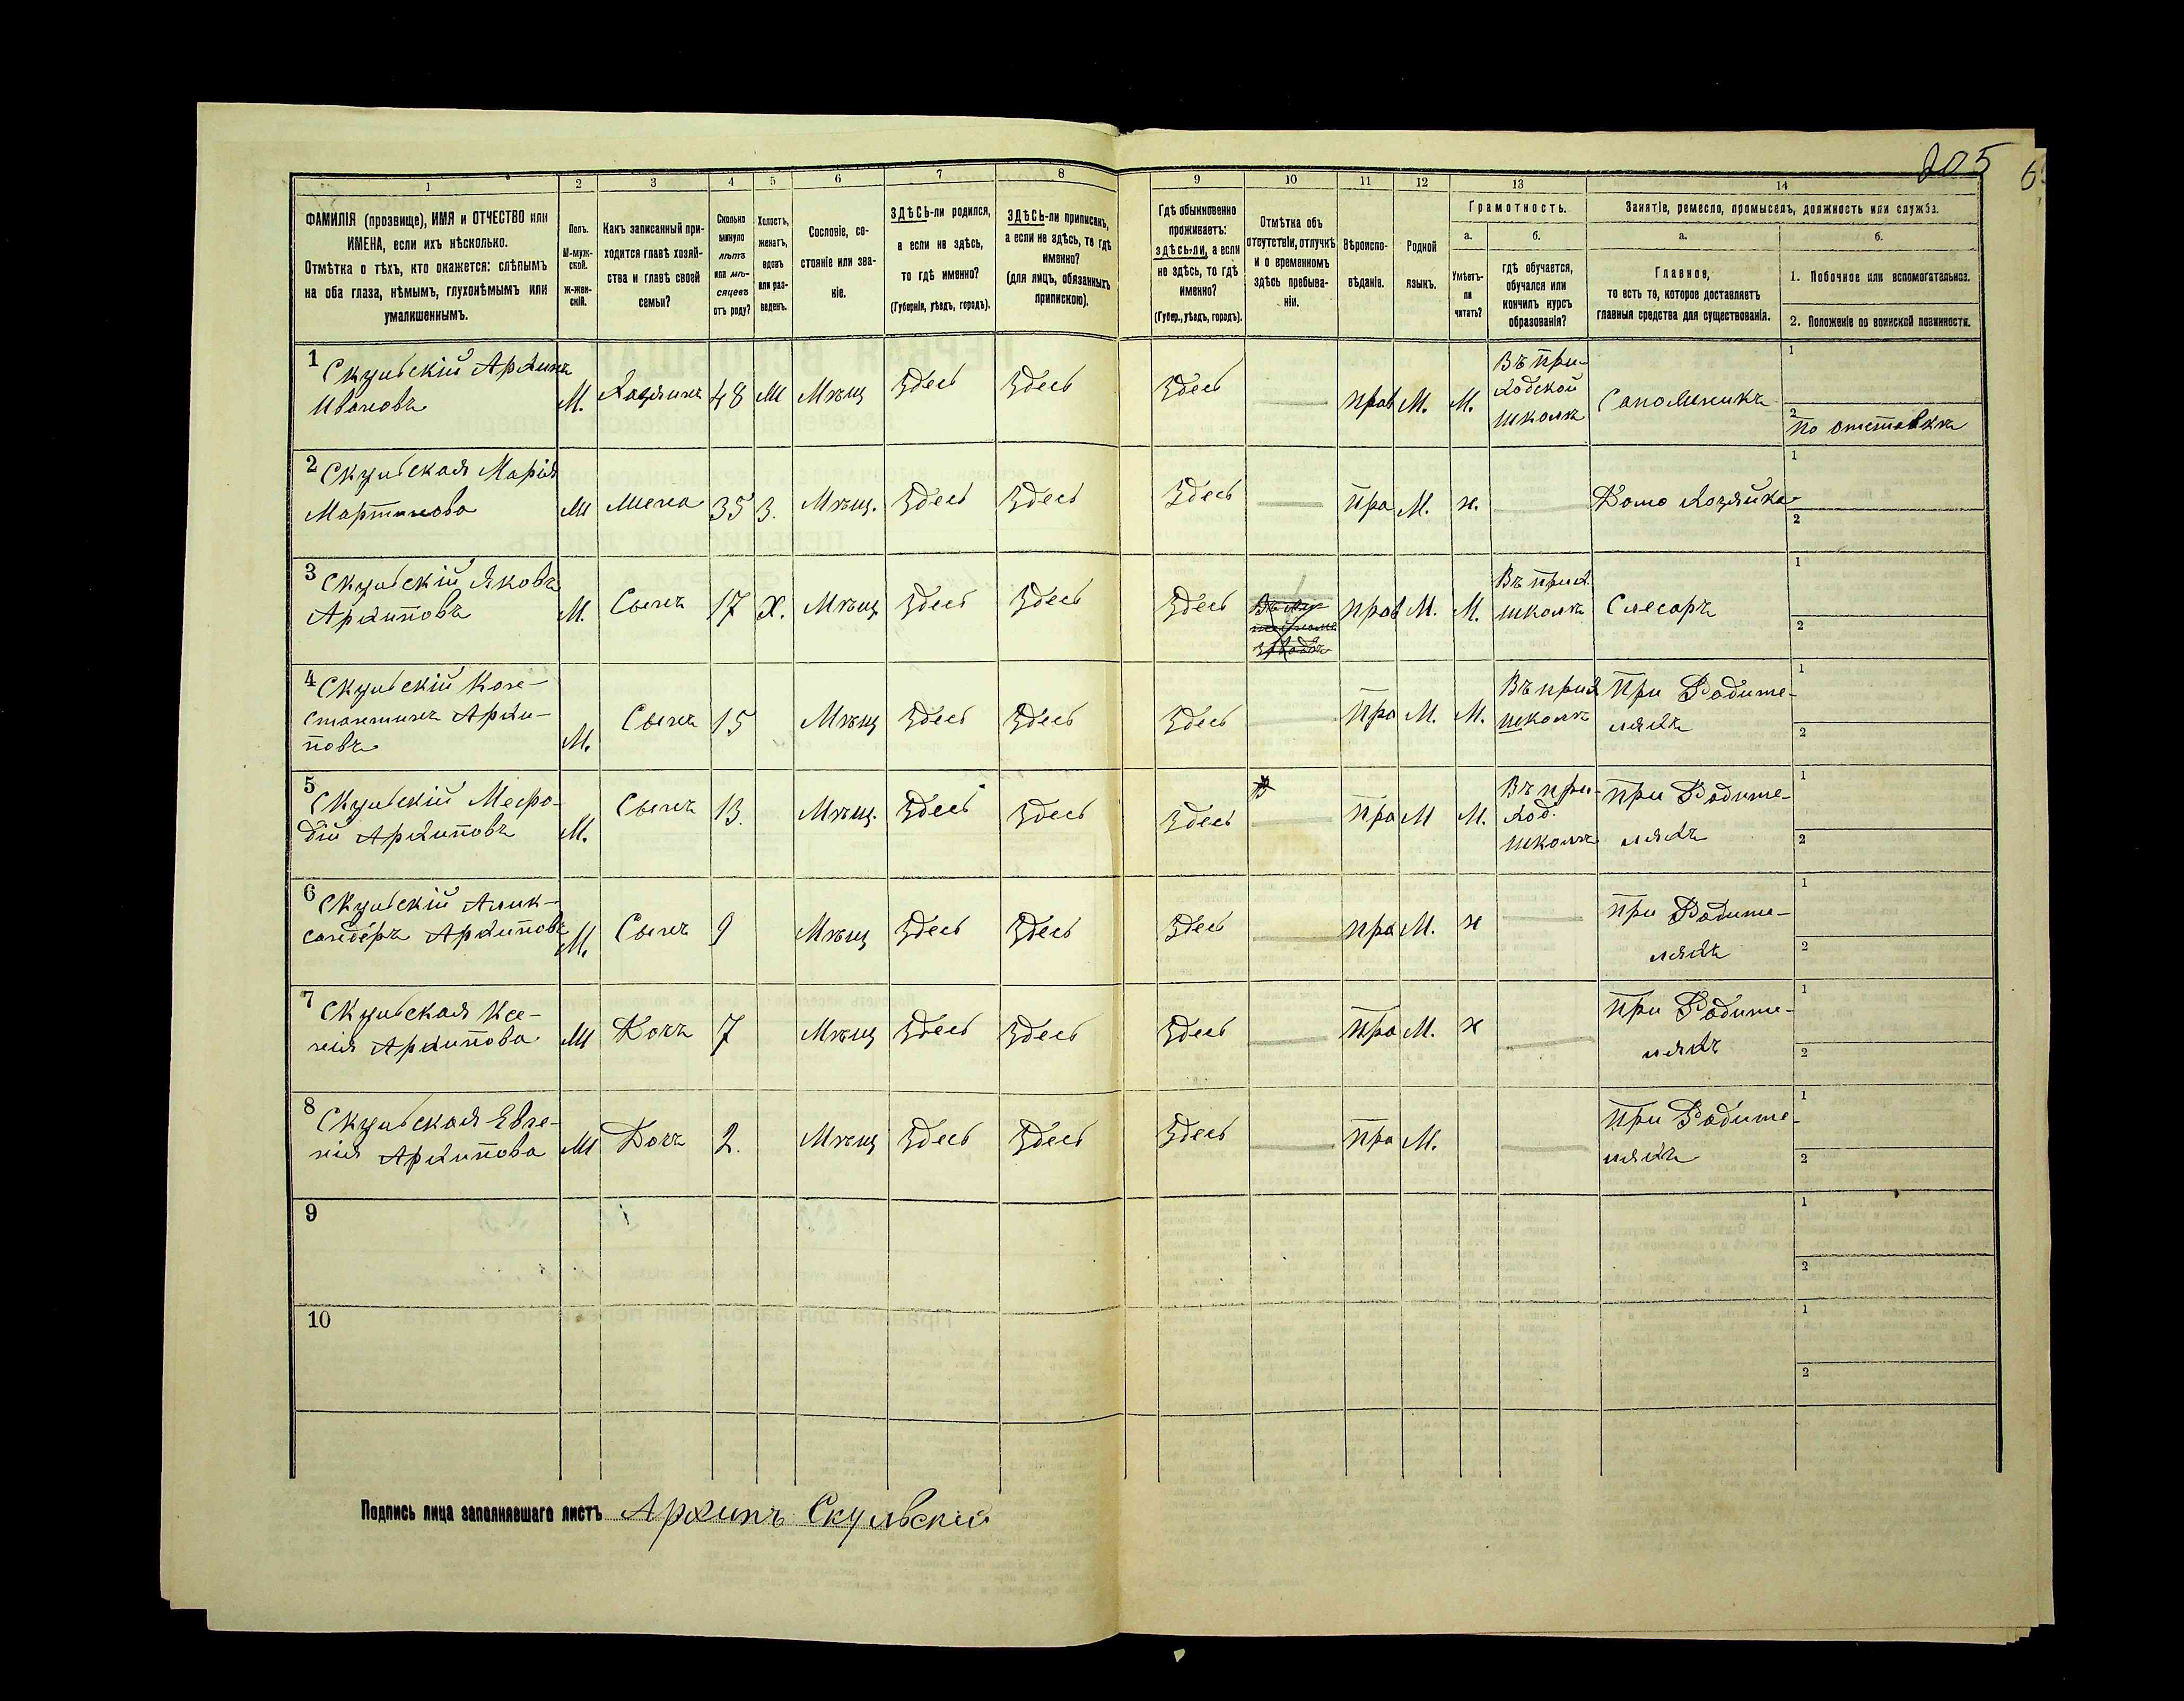 205
6
1 2 3 4 5 6 7 8 9 10 11 12 13 14
ФАМИЛІЯ (прозвище), ИМЯ и ОТЧЕСТВО или
ИМЕНА, если ихъ нѣсколько.
Отмѣтка о тѣхъ, кто окажется: слѣпымъ
на оба глаза, нѣмымъ, глухонѣмымъ или
умалишеннымъ.
Полъ.
М-муж-
ской.
Ж-жен-
скій.
Какъ записанный при-
ходится главѣ хозяй-
ства и главѣ своей
семьи?
Сколько
минуло
лѣтъ
или мѣ-
сяцевъ
отъ роду?
Холостъ,
женатъ,
вдовъ
или раз-
веденъ.
Сословіе, со-
стояніе или зва-
ніе.
ЗДѢСЬ-ли родился,
а если не здѣсь,
то гдѣ именно?
(Губернія, уѣздъ, городъ).
ЗДѢСЬ-ли приписанъ,
а если не здѣсь, то гдѣ
именно?
(для лицъ, обязанныхъ
припискою).
Гдѣ обыкновенно
проживаетъ:
здѣсь-ли, а если
не здѣсь, то гдѣ
именно?
(Губер., уѣздъ, городъ).
Отмѣтка объ
отсутствіи, отлучкѣ
и о временномъ
здѣсь пребыва-
ніи.
Вѣроиспо-
вѣданіе.
Родной
языкъ.
Грамотность.
а.
Умѣетъ-
ли
читать?
б.
гдѣ обучается,
обучался или
кончилъ курсъ
образованія?
Занятіе, ремесло, промыселъ, должность или служба.
а.
Главное,
то есть то, которое доставляетъ
главныя средства для существованія.
б.
1. Побочное или вспомогательное.
2. Положеніе по воинской повинности.
1 Скульскій Архипъ
Ивановъ
М. Хозяинъ 48 Ж Мѣщ Здесь Здесь Здесь прав М. М.
Въ при-
ходской
школѣ
Сапожникъ
1
2 по отставкѣ
2 Скульская Марія
Мартинова
Ж Жена 35 З. Мѣщ. Здесь Здесь Здесь пра М. н. Домо хозяйка
1
2
3 Скульскій Яковъ
Архиповъ
М. Сынъ 17 Х. Мѣщ Здесь Здесь Здесь прав М. М.
Въ прих.
школѣ
Слесарь
1
2
4 Скульскій Кон-
стантинъ Архи-
повъ
М. Сынъ 15 Мѣщ Здесь Здесь Здесь пра М. М.
Въ прих
школѣ
при Родите-
ляхъ
1
2
5 Скульскій Мефо-
дій Архиповъ
М. Сынъ 13. Мѣщ. Здесь Здесь Здесь пра М М.
Въ при-
ход.
школѣ
при Родите-
ляхъ
1
2
6 Скульскій Алик-
сандеръ Архиповъ
М. Сынъ 9 Мѣщ Здесь Здесь Здесь пра М. н
при Родите-
ляхъ
1
2
7 Скульская Ксе-
нія Архипова
Ж Дочь 7 Мѣщ Здесь Здесь Здесь пра М. н
при Родите-
ляхъ
1
2
8 Скульская Евге-
нія Архипова
Ж Дочь 2. Мѣщ Здесь Здесь Здесь пра М.
при Родите-
ляхъ
1
2
9
1
2
10
1
2
Подпись лица заполнявшаго листъ Архипъ Скульскій